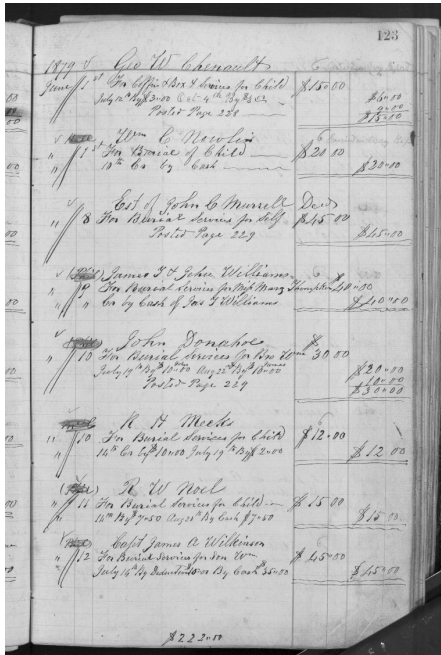 123
1879 Geo W Chenault
June 1st For Coffin & Box & Services for Child $15.00
July 12th By $3.00 Oct 4th By $ $6.00
9.00
Posted Page 228 $15.00
Wm C Nowlin
" 1st For Burial of Child $20.00
" 10th Cr by Cash $20.00
Est of John C Murrell Decd
" 8 For Burial Services for Self $45.00
Posted Page 229 $45.00
James T & John Williams
" 9 For Burial Services for Miss Mary Thompson $40.00
" " Cr by Cash of Jas T Williams $40.00
John Donahoe
" 10 For Burial Services for Bro Wm $30.00
July 19th By $10.00 Aug 22d By $10.00 $20.00
10.00
Posted Page 229 $30.00
R H Meeks
" 10 For Burial Services for Child $12.00
" 14th Cr by $10.00 July 19th By $2.00 $12.00
R W Noel
" 11 For Burial Services for Child $15.00
" 14th By $7.50 Aug 21st By Cash $7.50 $15.00
Capt James A Wilkinson
" 12 For Burial Services for Son Wm $45.00
" July 14th By Deduction $10.00 By Cash $35.00 $45.00
$222.00